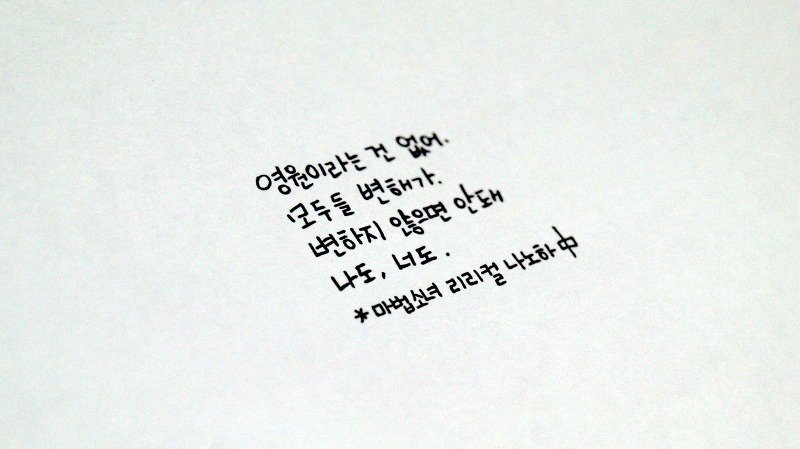 영원이라는 건 없어.
모두들 변해가.
변하지 않으면 안돼
나도, 너도.
*마법소녀 리리컬 나노하 中